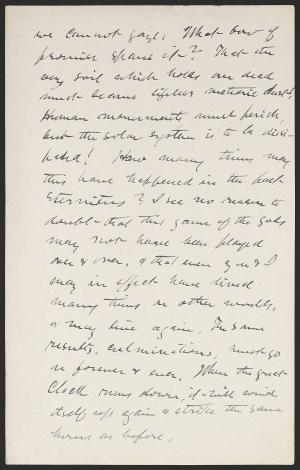 we cannot gage. What bow of
promise spans it? That the
very soil which holds our dead
must become lifeless meteoric dust!
Human monuments must perish,
but the solar system is to be disin-
How many times may
this have happened in the back
Eternities? I see no reason to
doubt that this game of the gods
may not have been played
over & over, & that even you & I
may in effect have lived
many times on other worlds,
& may live again. The same
results, culminations, must go
on forever & ever. When the great
Clock runs down, it will wind
itself up again & strike the same
hours as before.